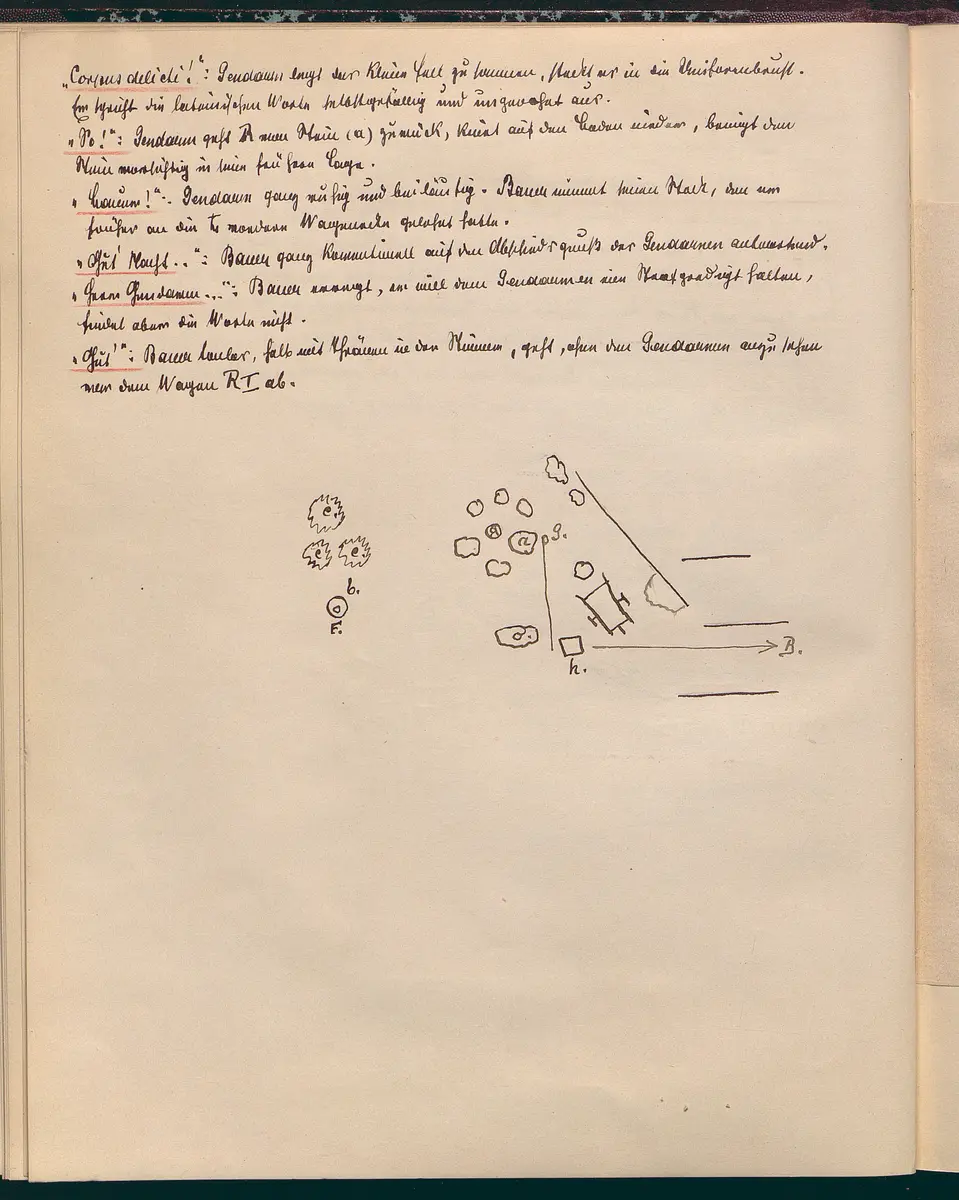 „Corpus delicti!": Gendarm legt das kleine Fell zusammen, steckt es in die Uniformbrust.
Er spricht die lateinischen Worte selbstgefällig und ungewohnt aus.
„So!": Gendarm geht R vom Stein (a) zurück, kniet auf den Boden nieder, bringt den
Stein vorsichtig in seine frühere Lage.
„Komm!": Gendarm ganz ruhig und beiläufig. Bauer nimmt seinen Stock, den er
früher an die vordere Wagenseite gelehnt hatte.
„Gut' Nacht...": Bauer ganz konventionell auf den Abschiedsgruß des Gendarmen antwortend.
„Herr Gendarm...": Bauer erregt, er will dem Gendarmen eine Strafpredigt halten,
findet aber die Worte nicht.
„Gut'": Bauer, halb mit Thränen in der Stimme, geht, ohne den Gendarmen anzusehen
vor dem Wagen R I ab.
e.
e. e.
b.
F.
a
G.
h.
B.